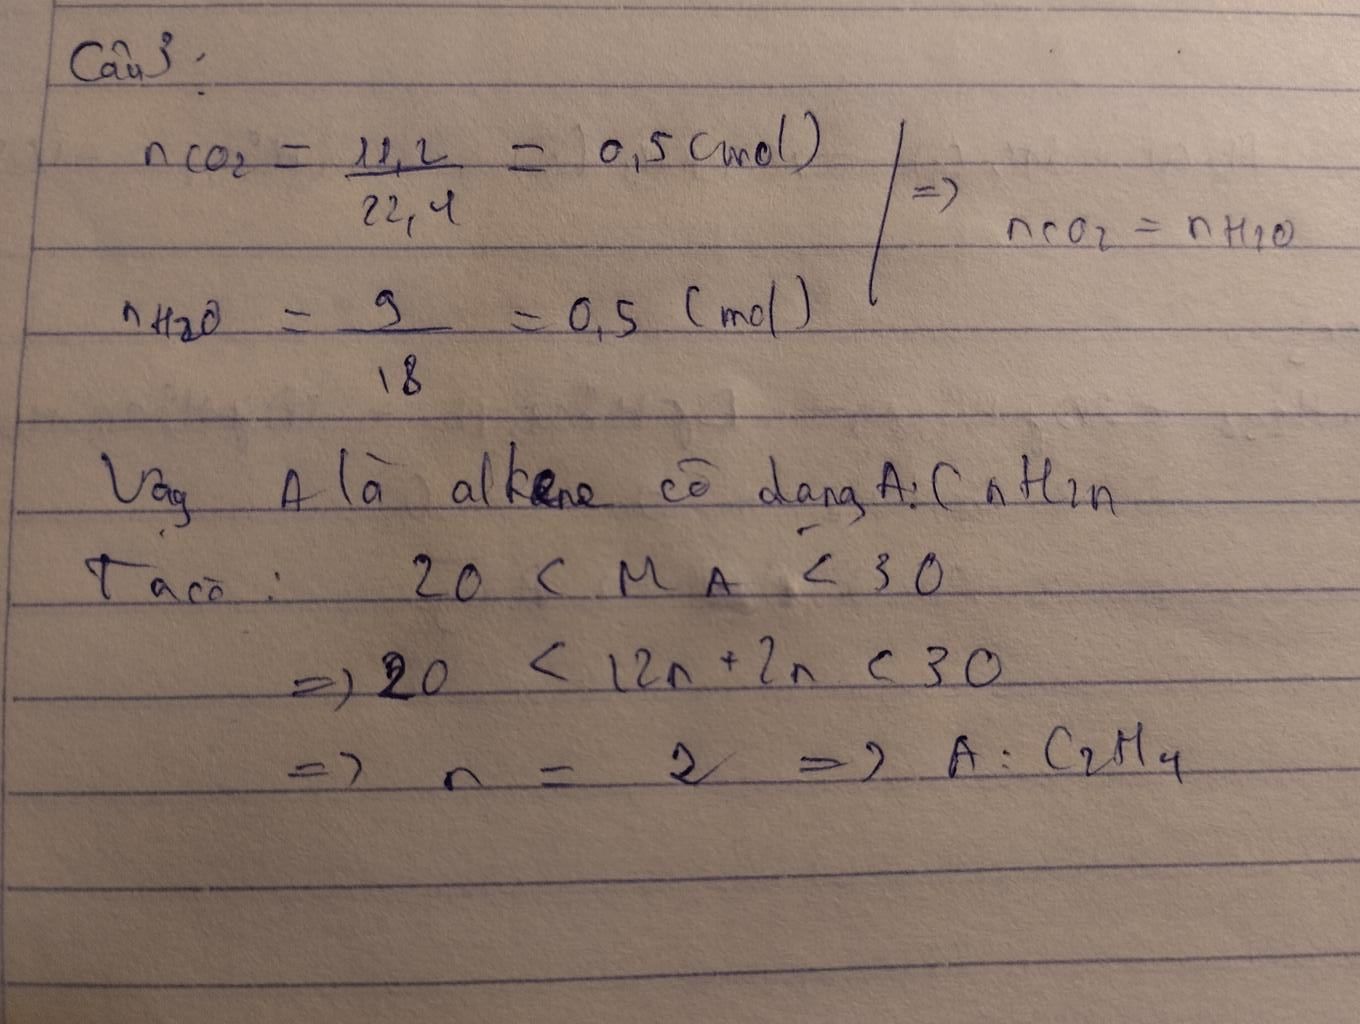 Câu 3:
nCO2 = 11,2 / 22,4 = 0,5 (mol)
=> nCO2 = nH2O
nH2O = 9 / 18 = 0,5 (mol)
Vậy A là alkene có dạng A: CnH2n
Ta có: 20 < MA < 30
=> 20 < 12n + 2n < 30
=> n = 2 => A: C2H4